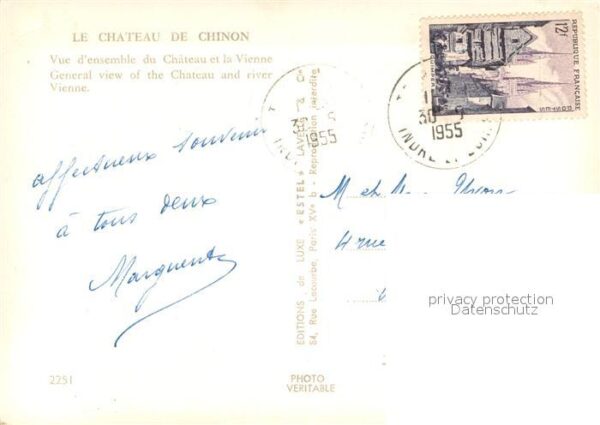 LE CHATEAU DE CHINON
Vue d'ensemble du Château et la Vienne
General view of the Chateau and river
Vienne.
affectueux souvenir
à tous deux
Marguerite
2251
EDITIONS de LUXE "ESTEL" LAVELLE & Cie
84, Rue Lecourbe, Paris XVe b - Reproduction interdite
PHOTO
VERITABLE
12F
REPUBLIQUE FRANÇAISE
QUIMPER
30
1955
INDRE ET LOIRE
1955
M et Mme
4 rue
privacy protection
Datenschutz